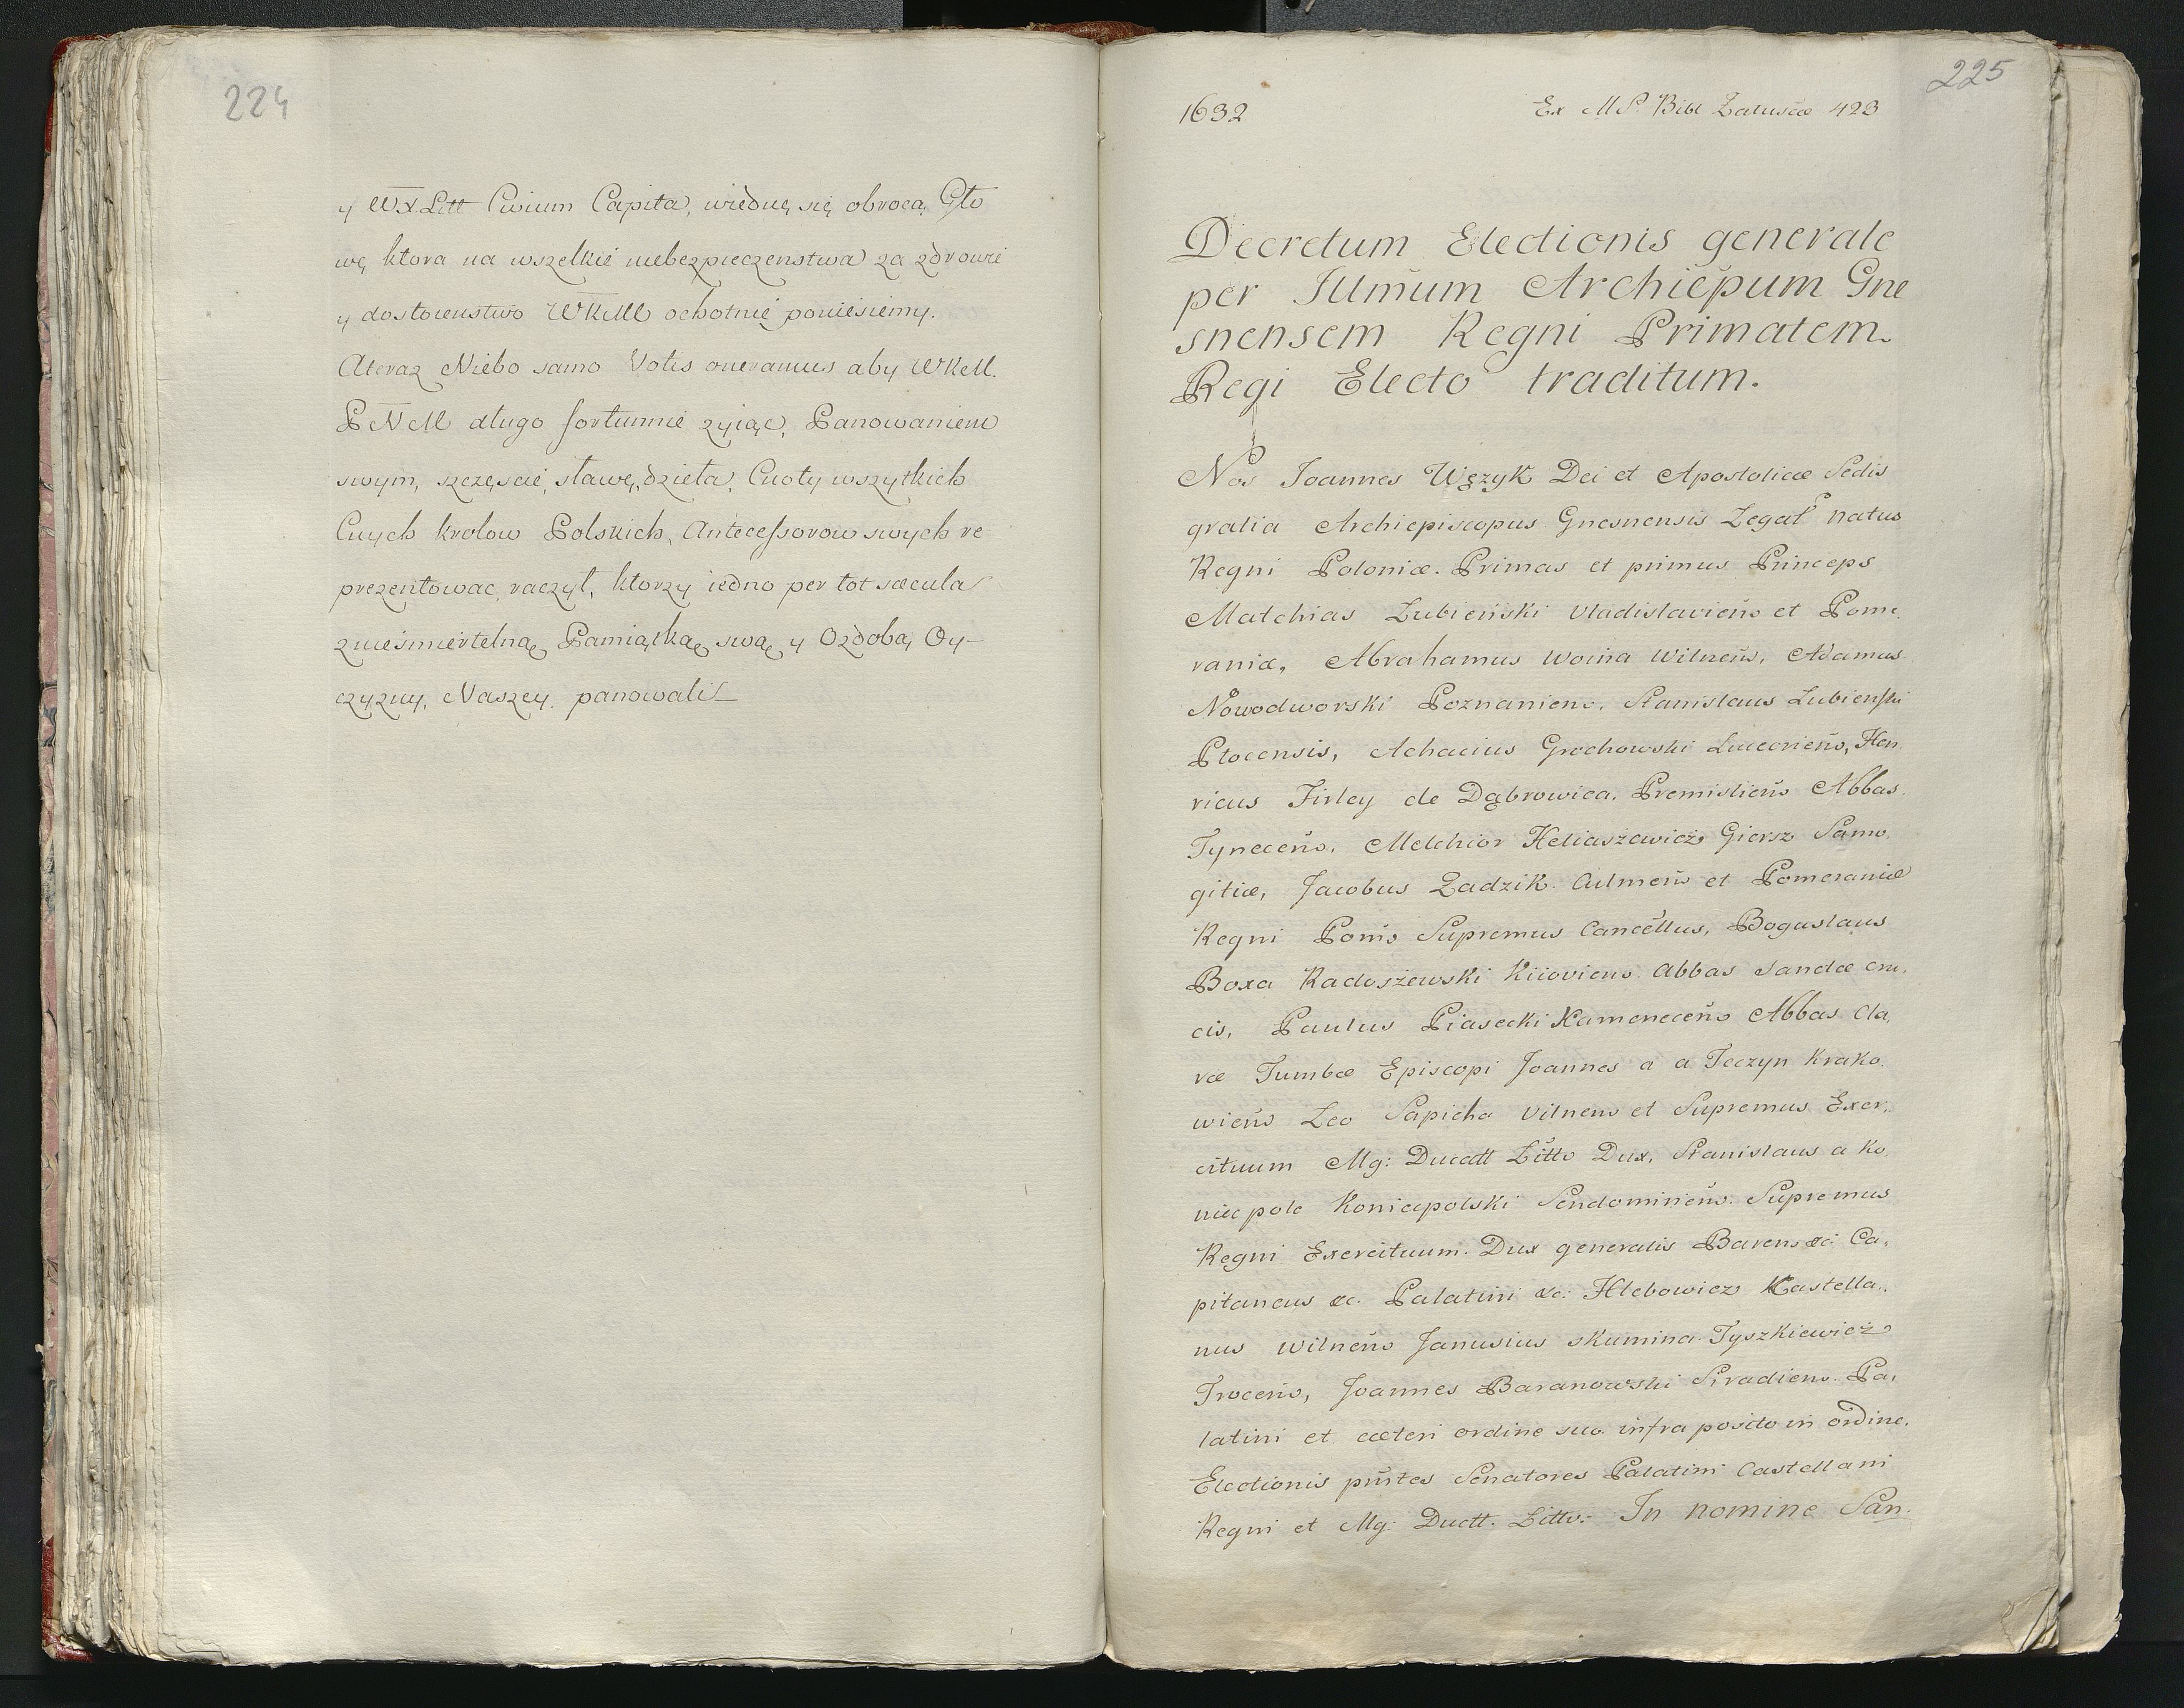 224
y WX Litt Civium Capita, wiednę się obrocą Gło
wę ktora na wszelkie niebezpieczenstwa za zdrowie
y dostoienstwo WKM ochotnie poniesiemy.
Ateraz Niebo samo Votis oneramus aby WKM.
PNM długo fortunnie zyiąc, Panowaniem
swym, szczęscie, sławę, dzieła, Cnoty wszytkich
Cnych krolow Polskich, Antecessorow swych re
prezentowac, raczył, ktorzy iedno per tot sæcula
znieśmiertelną Pamiątką swą y Ozdobą Oy-
czyzny, Naszey. panowali
225
1632 Ex MS Bibl Zalusciæ 423
Decretum Electionis generale
per Illmum Archiepum Gne
snensem Regni Primatem.
Regi Electo traditum.
Nos Joannes Wężyk Dei et Apostolicæ Sedis
gratia Archiepiscopus Gnesnensis Legat9 natus
Regni Poloniæ. Primas et primus Princeps
Matthias Lubieński Vladislavieñs et Pome.
raniæ, Abrahamus Woina Wilneñs, Adamus
Nowodworski Poznaniens, Stanislaus Lubieński
Plocensis, Achacius Grochowski Luceorieñs, Hen
ricus Firley de Dąbrowica, Premislieñs Abbas
Tyneceñs, Melchior Heliaszewicz Giersz Samo.
gitiæ, Jacobus Zadzik. Culmeñs et Pomeraniæ
Regni Poniæ Supremus Cancellus, Boguslaus
Boxa Radoszewski Kiioviens. Abbas Sanctæ cru,
cis, Paulus Piasecki Kameneceñs Abbas Cla,
ræ Tumbæ Episcopi Joannes a a Teczyn Krako.
wieñs Leo Sapieha Vilnens et Supremus Exer,,
cituum Mg: Ducatt Litto Dux, Stanislaus a Ko,
niecpole Koniecpolski Sendomirieñs. Supremus
Regni Exercituum. Dux generalis Barens &c: Ca,
pitaneus &c. Palatini &c: Hlebowicz Castella,,
nus Wilneñs Janusius Skumina Tyszkiewicz
Troceñs, Joannes Baranowski Siradiens. Pa,
latini et cæteri ordine suo infra posito in ordine,
Electionis pñtes Senatores Palatini Castellani
Regni et Mg: Ductt. Litto:- In nomine San.